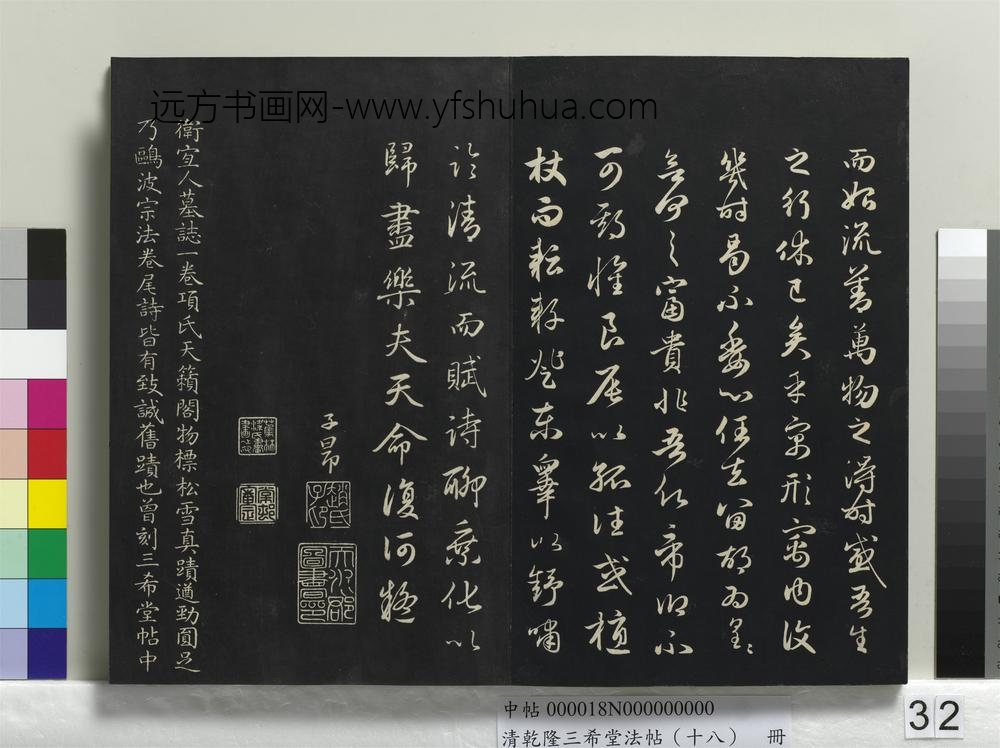 远方书画网-www.yfshuhua.com
而始流善萬物之得時感吾生
之行休已矣乎寓形寓内復
幾時曷不委心任去留胡為皇〻
欲何之富貴非吾願帝鄉不
可期懷良辰以孤往或植
杖而耘耔登東皋以舒嘯
臨清流而賦詩聊乘化以
歸盡樂夫天命復何疑
子昂
趙氏子昂
天水郡圖書印
衛宜人墓誌一卷項氏天籟閣物標松雪真蹟遒勁圓足
乃鷗波宗法卷尾詩皆有致誠舊蹟也曾刻三希堂帖中
中帖 000018N000000000
清乾隆三希堂法帖（十八） 冊
32